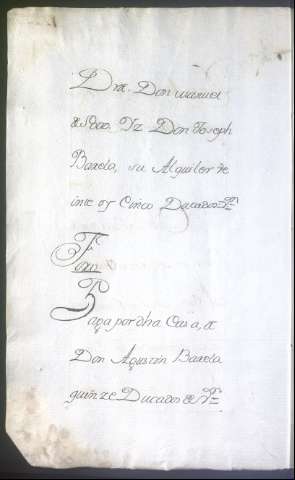 Dra. Don Manuel
Yz Don Joseph
Barela, su Alquiler Ve
inte oy Cinco Ducados Vn
Foro
Paga por dha Casa, a
Don Agustin Barela
quinze Ducados de Vn